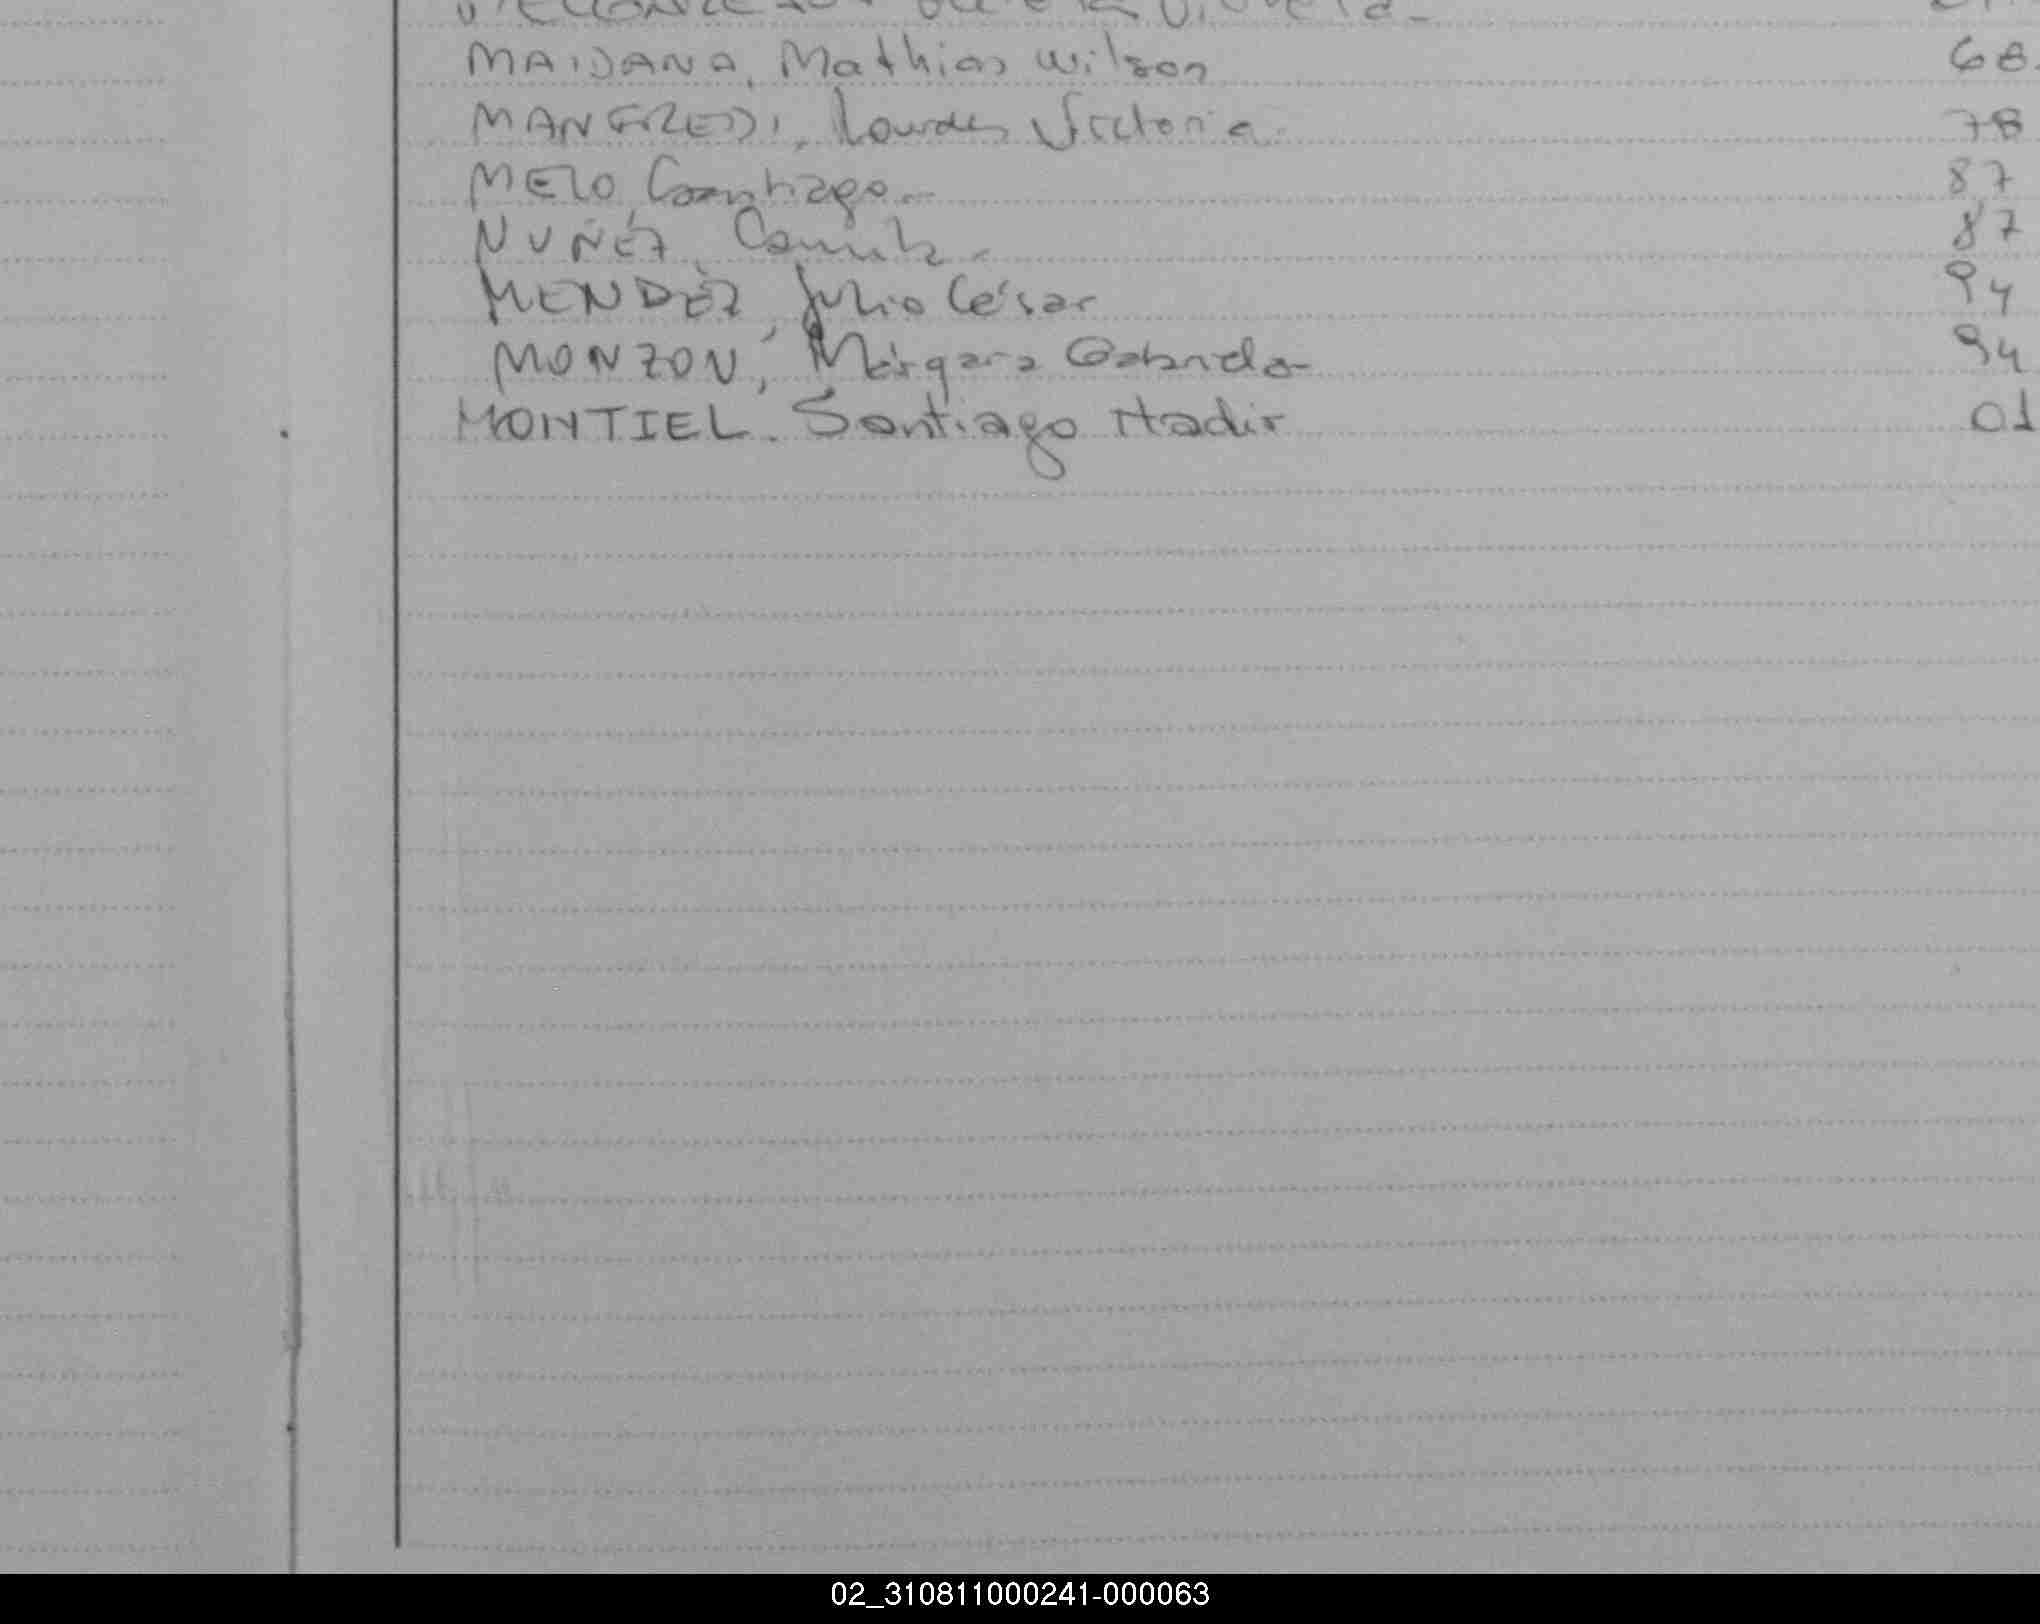 MAIDANA, Mathias Wilson 68.
MANFREDI, Lourdes Victoria. 78
MELO, Santiago.- 87
NUÑEZ, Camila.- 87
MENDEZ, Julio César 94
MONZON, Márgara Gabriela 94
MONTIEL. Santiago Nadir 01
02_310811000241-000063